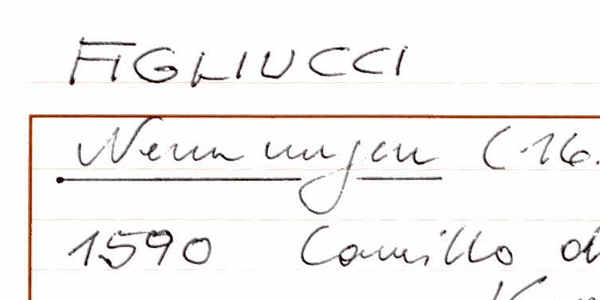 FIGLIUCCI
Nennungen (16.
1590 Camillo di